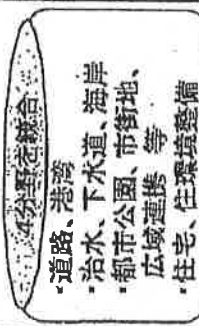 4分野を統合
・道路、港湾
・治水、下水道、海岸
・都市公園、市街地、
広域連携 等
・住宅、住環境整備